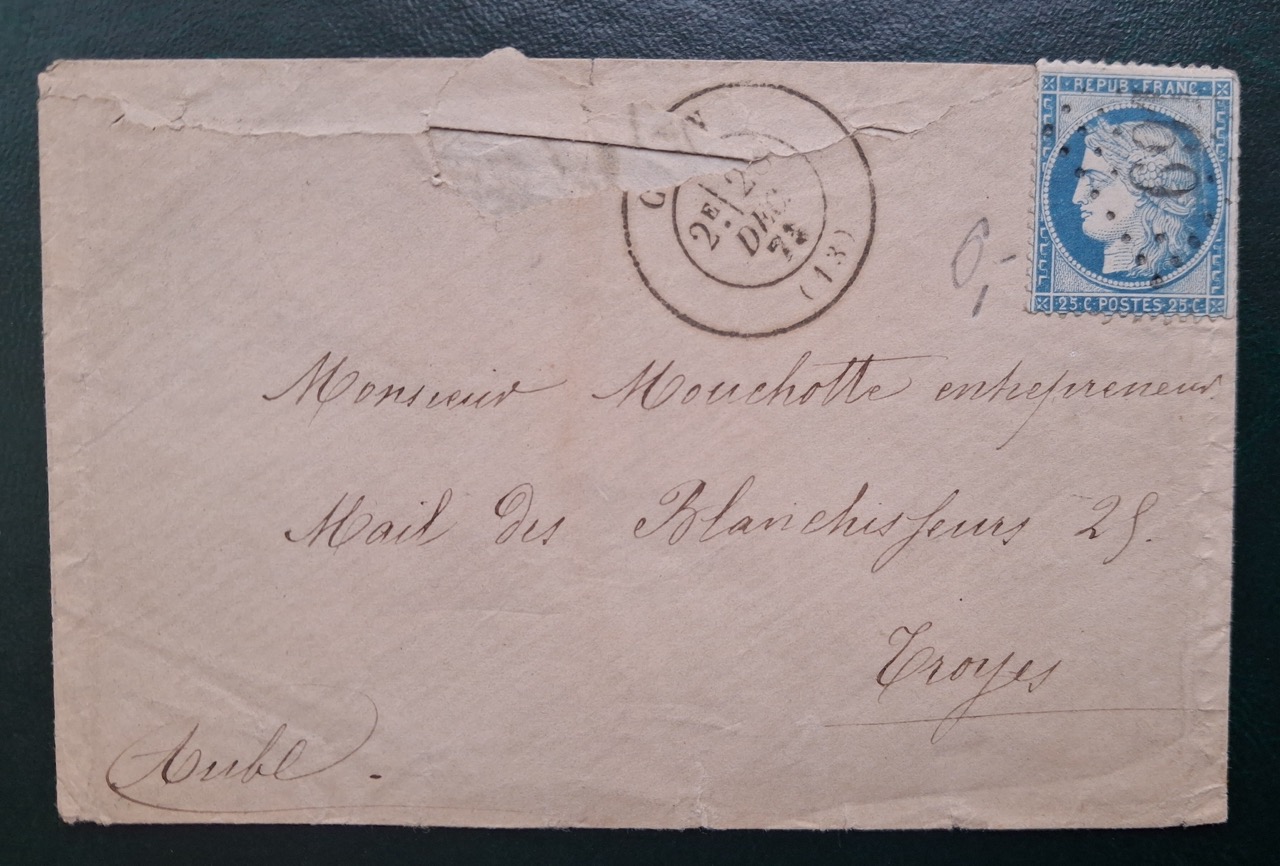 REPUB. FRANC.
2E
DEC.
(13)
25.C.POSTES.25.C.
6,-
Monsieur Mouchotte entrepreneur
Mail des Blanchisseurs 25.
Troyes
Aube.